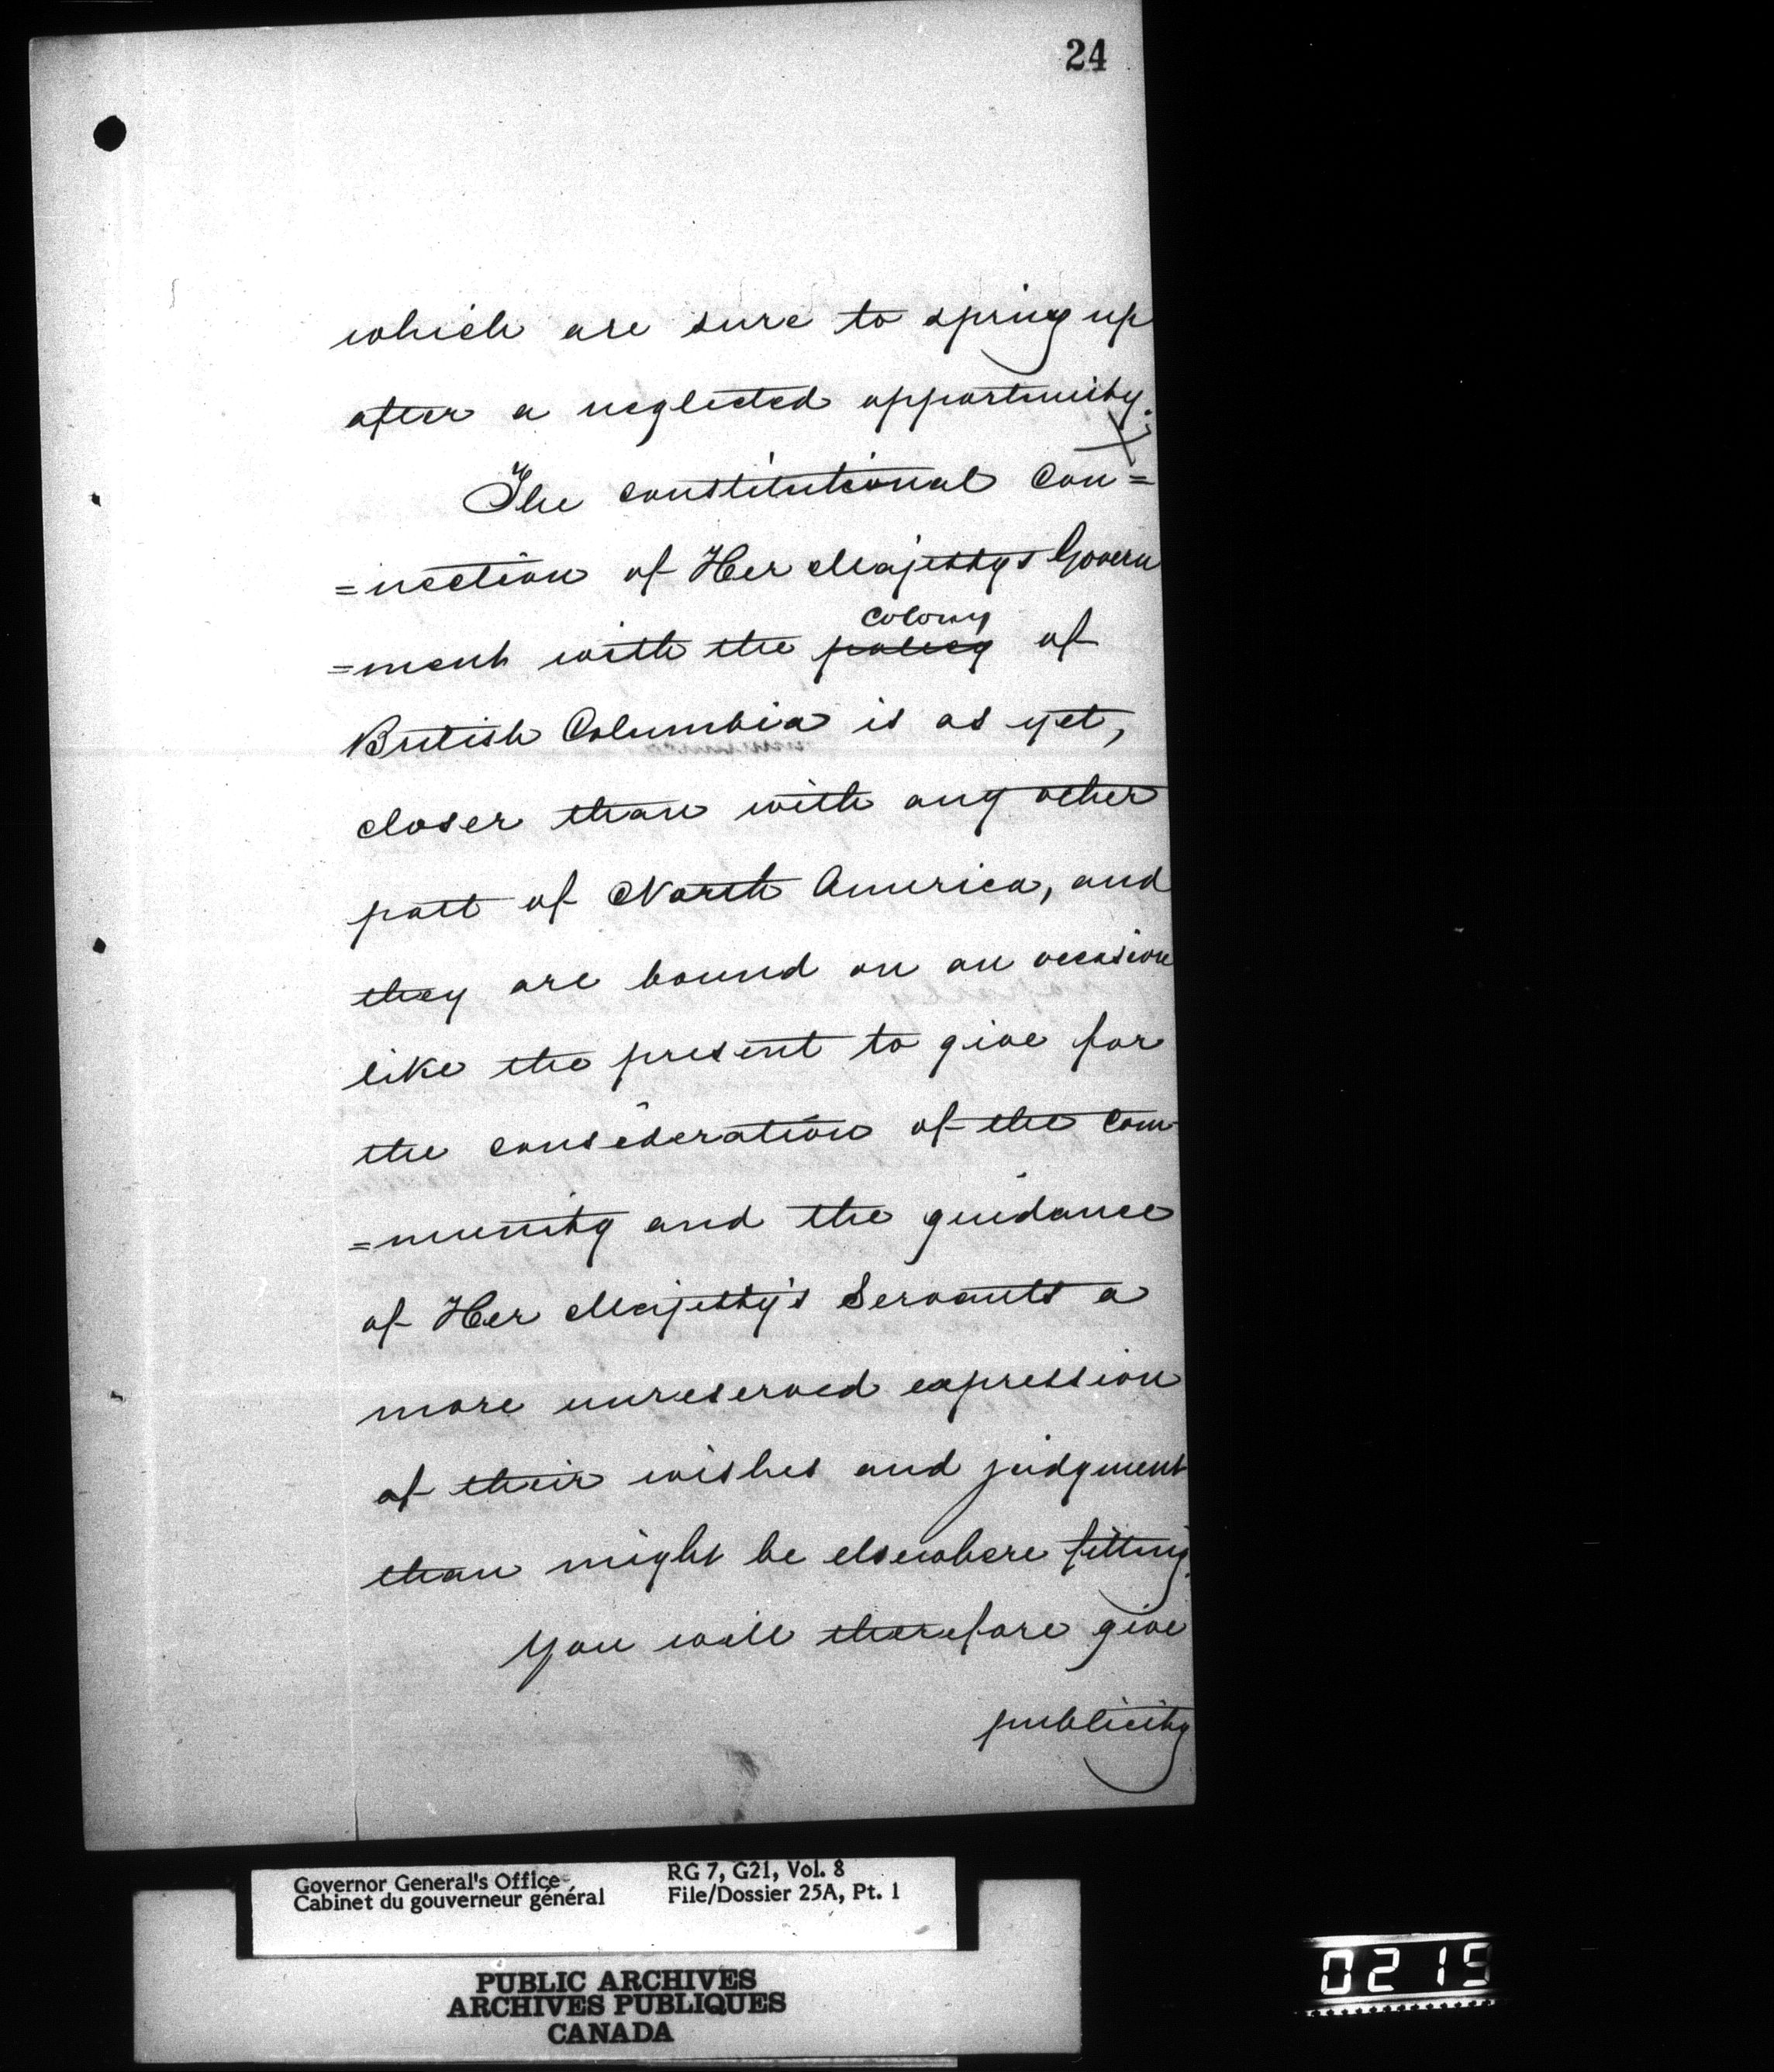 24
which are sure to spring up
after a neglected opportunity.
The constitutional Con=
=nection of Her Majesty's Govern
colony
=ment with the policy of
British Columbia is as yet,
closer than with any other
part of North America, and
they are bound on an occasion
like the present to give for
the consideration of the Com-
=munity and the guidance
of Her Majesty's Servants a
more unreserved expression
of their wishes and judgment
than might be elsewhere fitting.
You will therefore give
publicity
Governor General's Office
Cabinet du gouverneur général
RG 7, G21, Vol. 8
File/Dossier 25A, Pt. 1
PUBLIC ARCHIVES
ARCHIVES PUBLIQUES
CANADA
0215